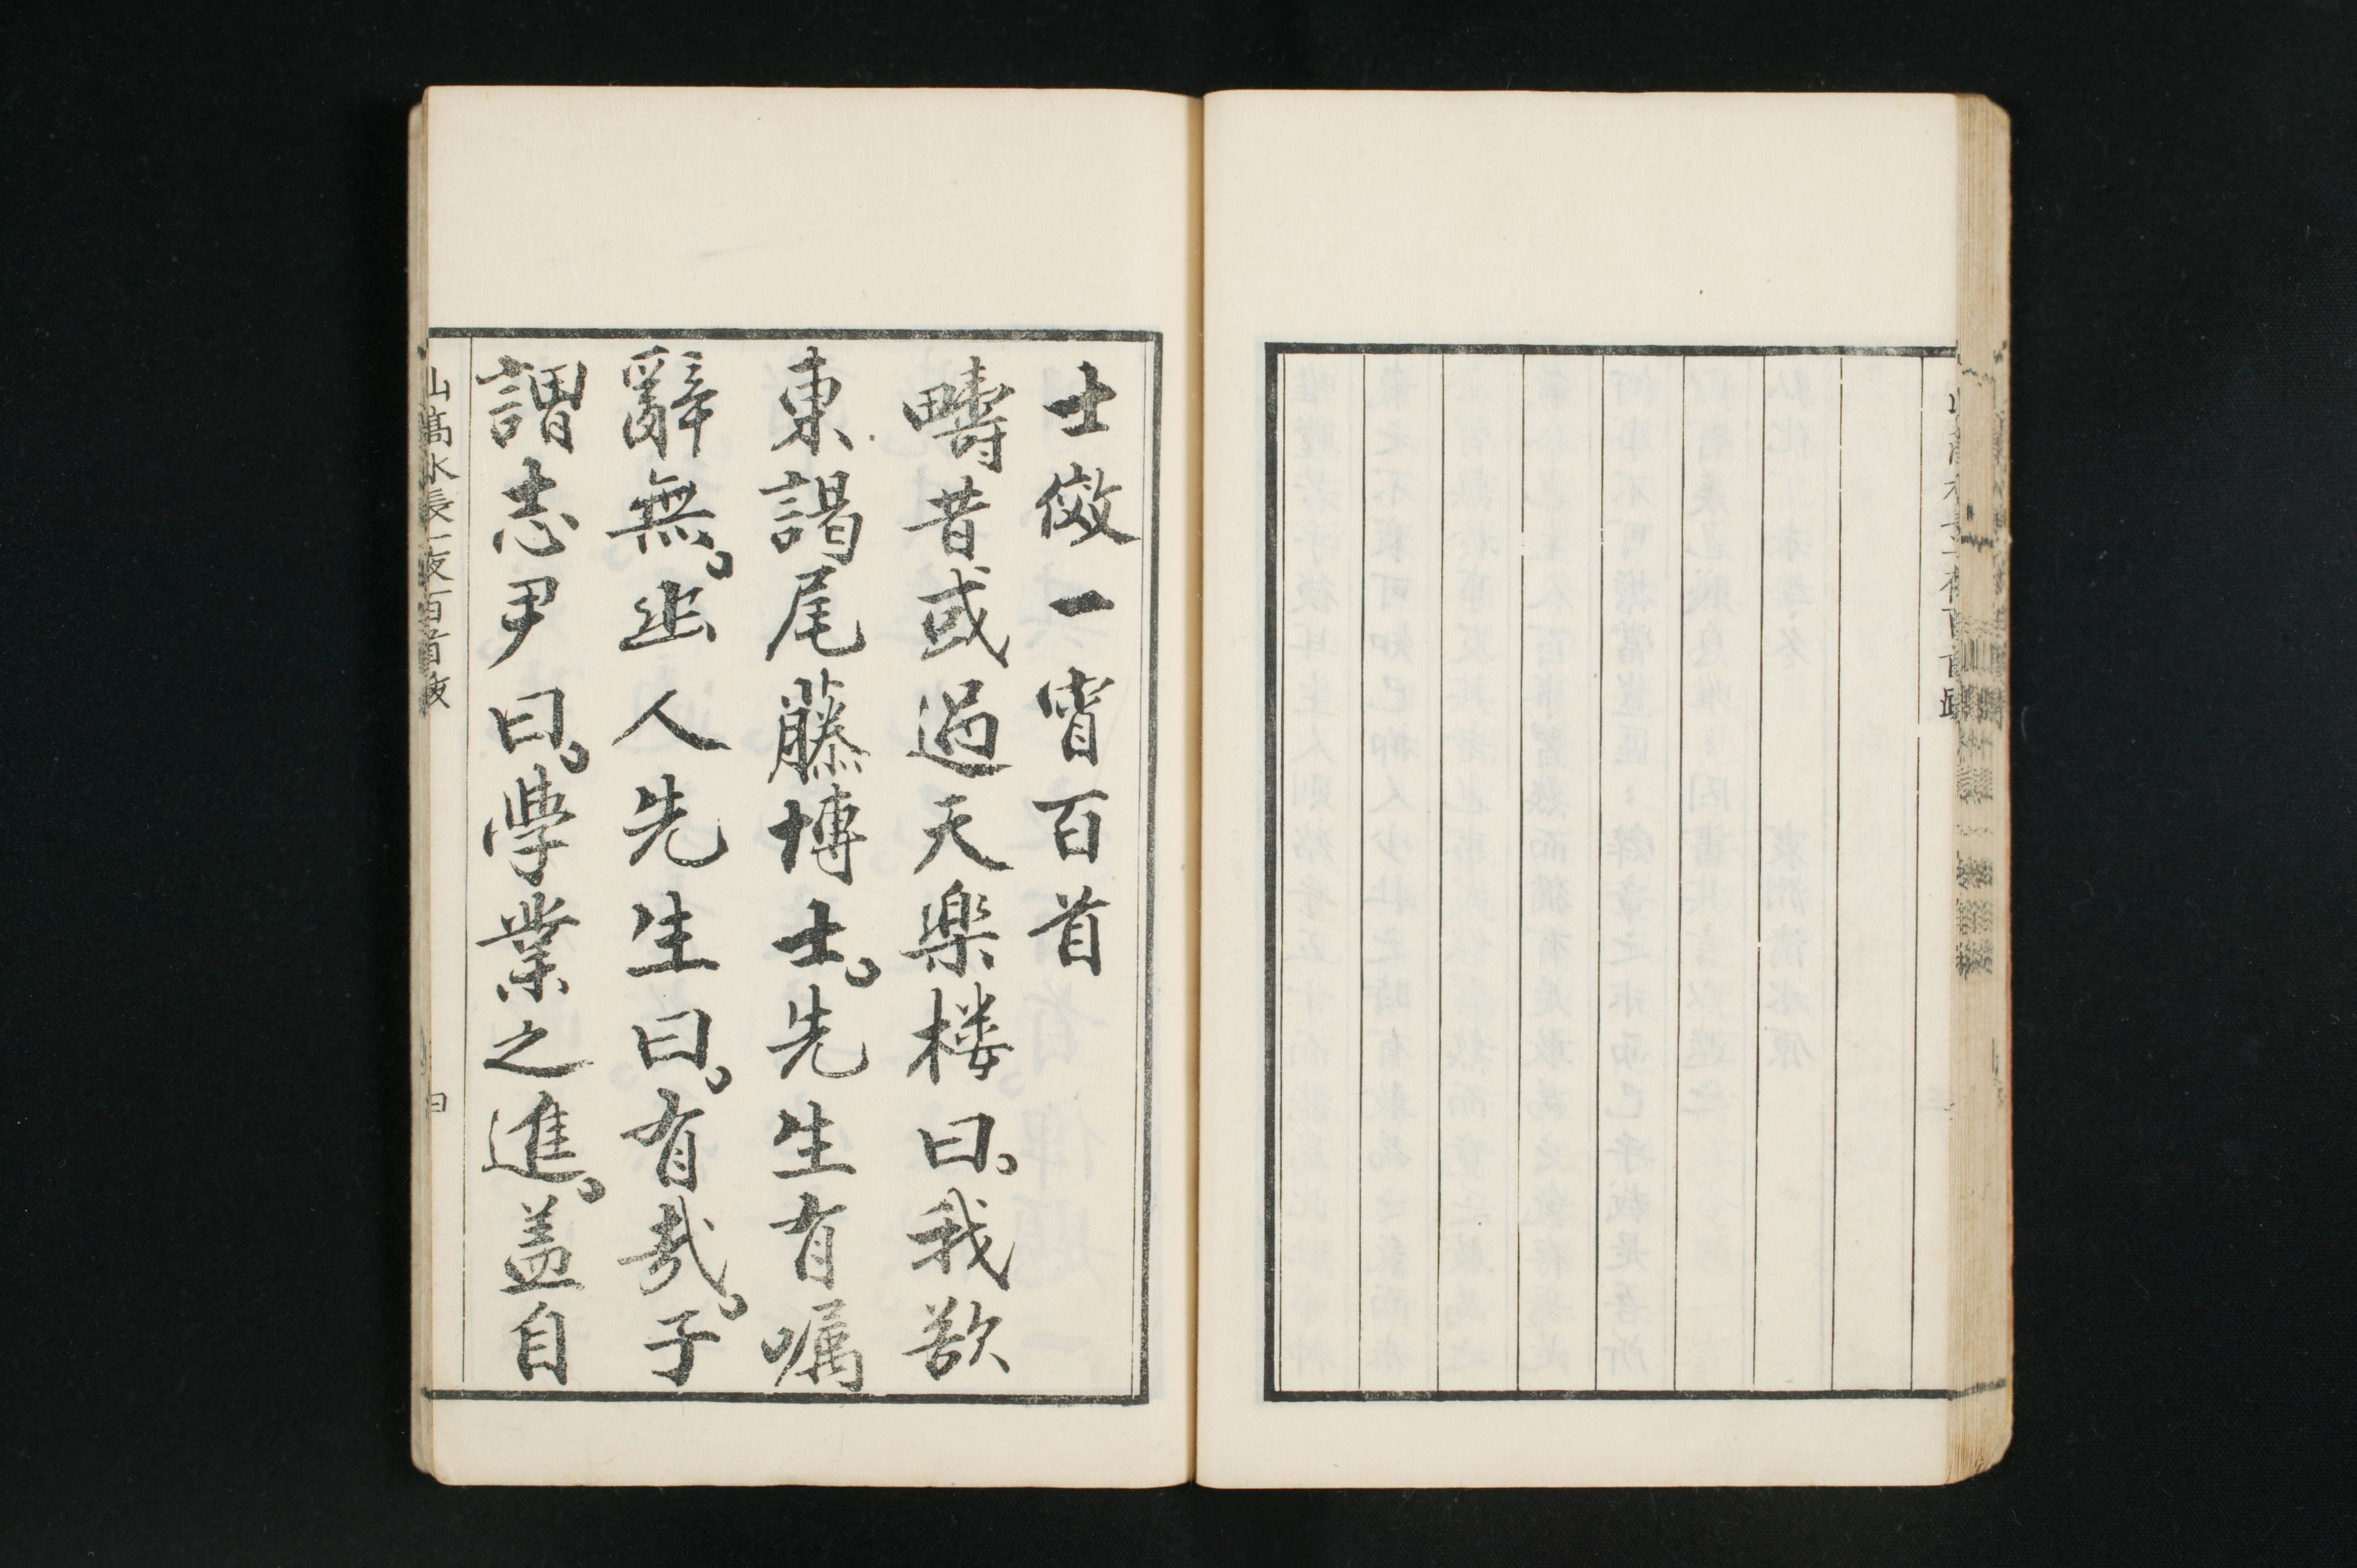 士儆一宵百首
疇昔或過天楽楼曰我欲
東謁尾藤博士先生有嘱
辭無出人先生曰有哉子
謂志尹曰学業之進盖自
山高水長一夜百首